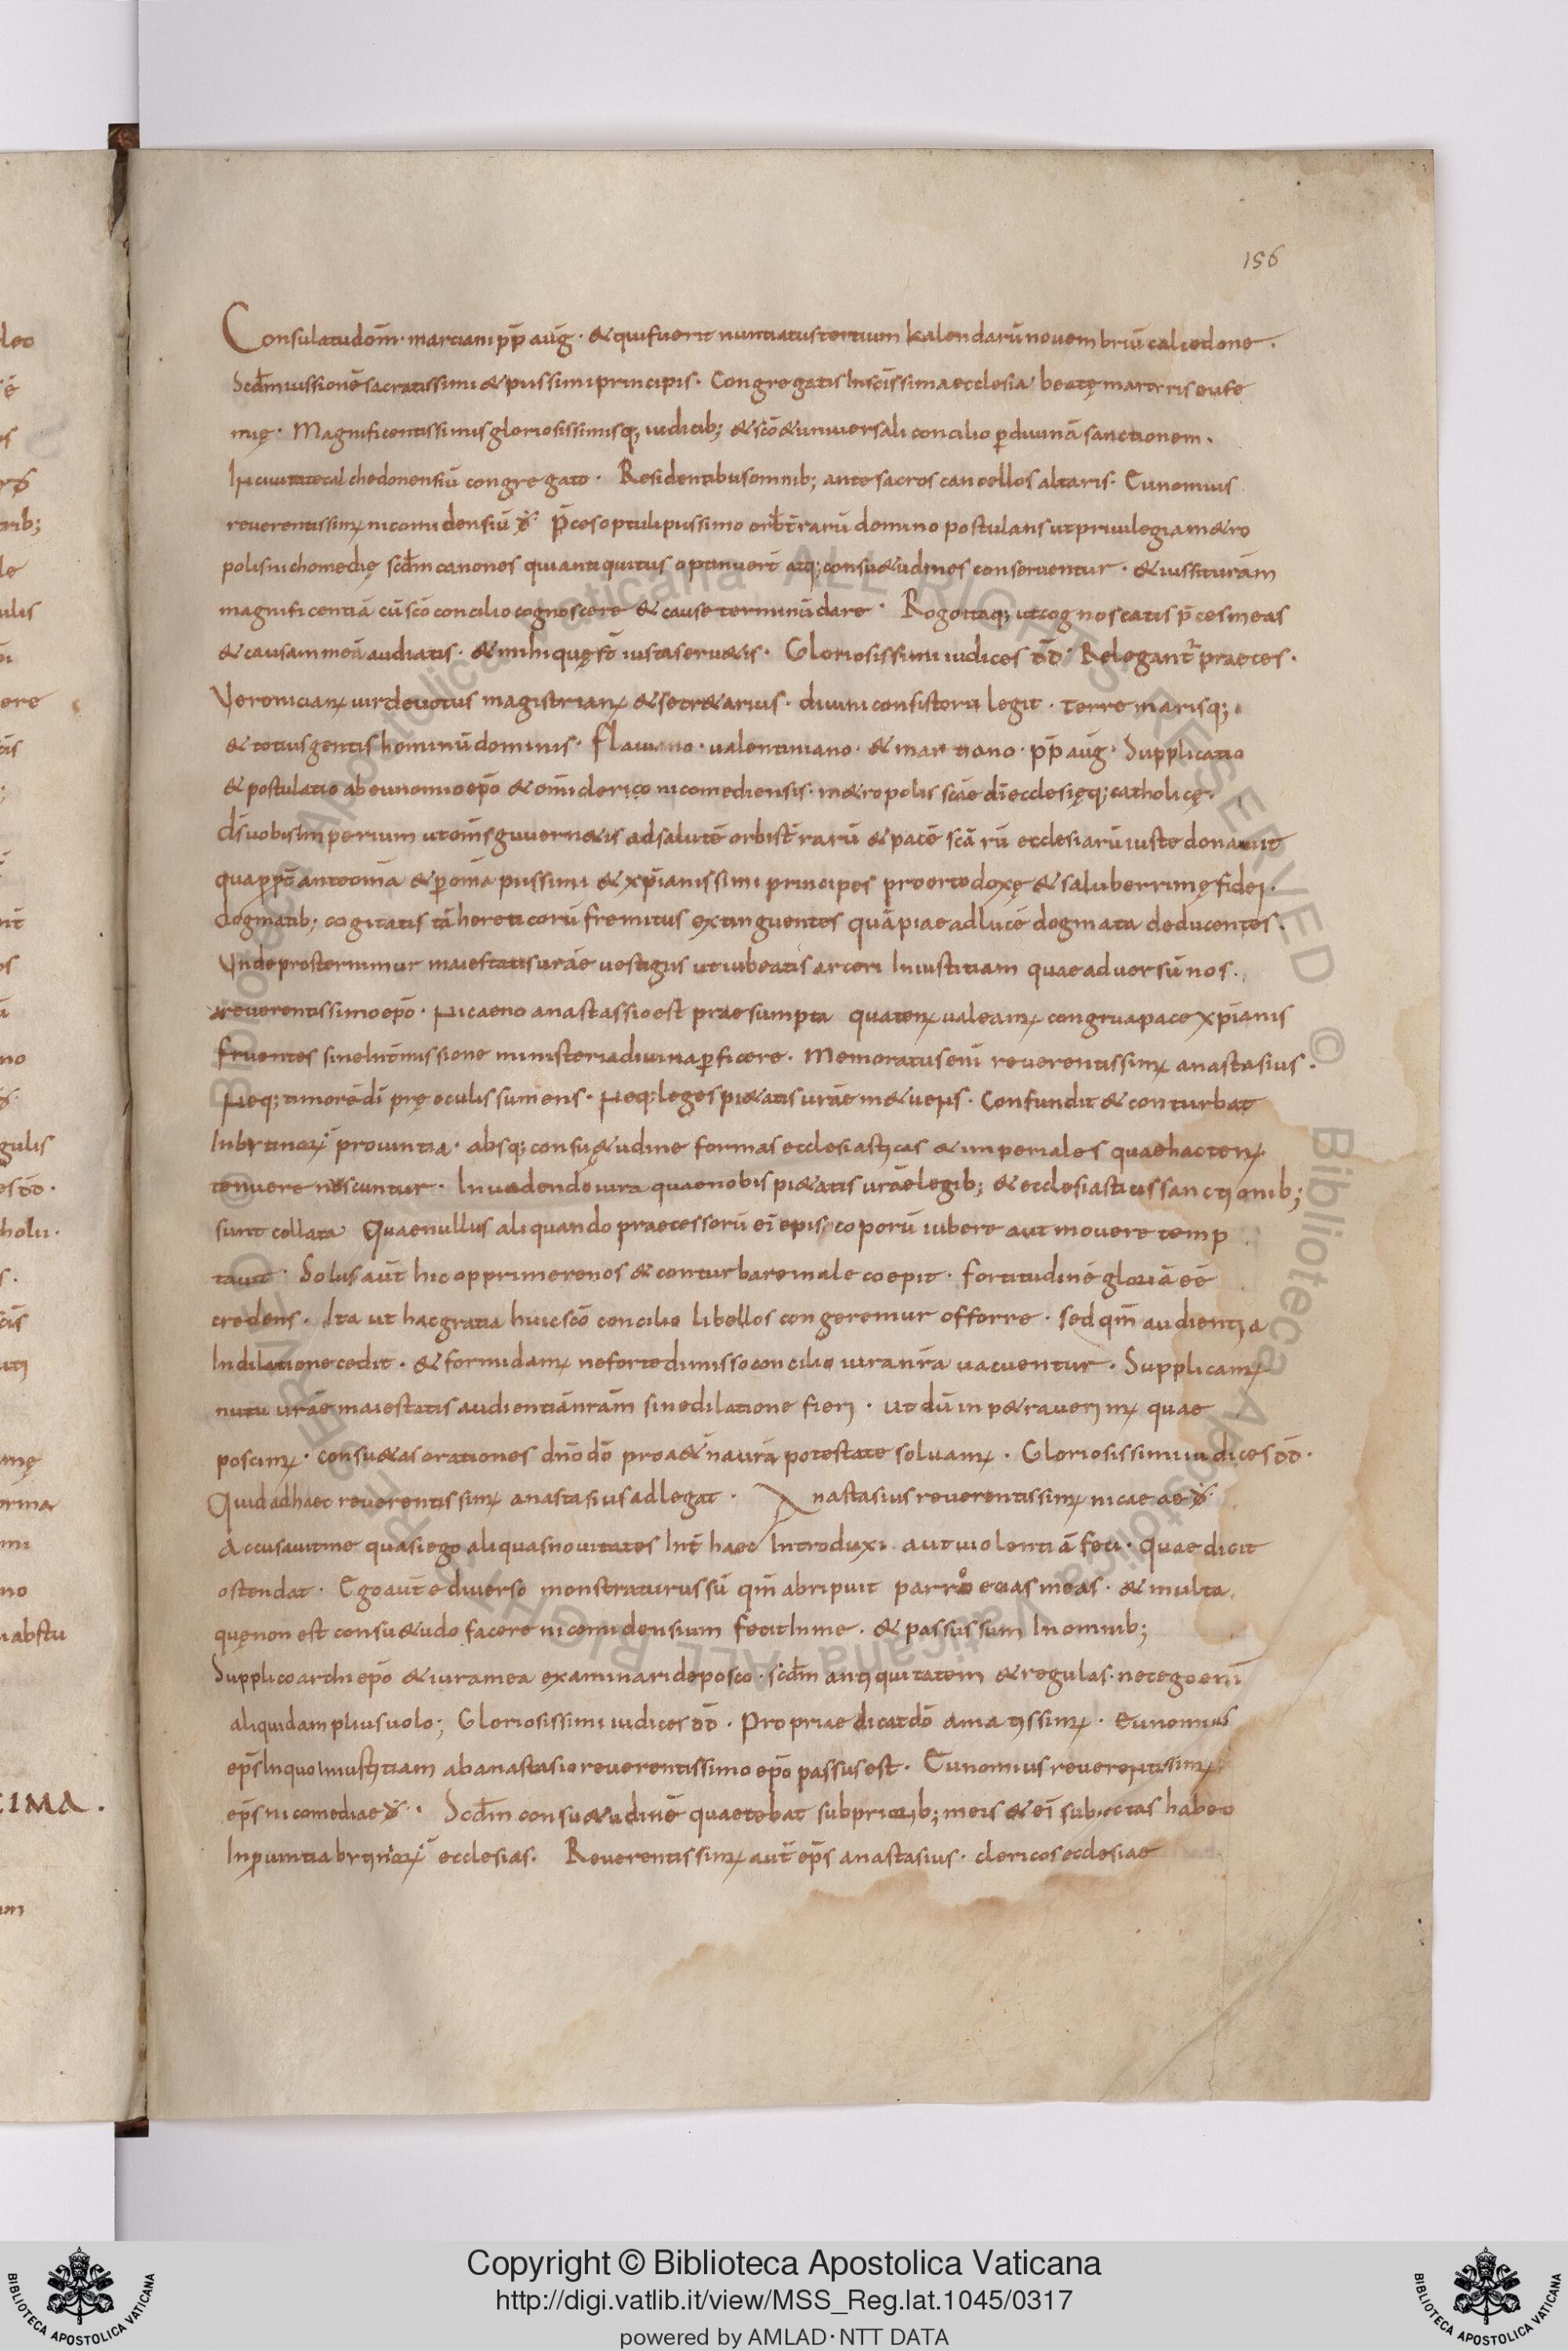 156
Consulatu dom̄· marciani pp̄ auḡ· & qui fuerit nuntiatus tertium kalendarū novembriū calcedone·
Scd̄m iussionē sacratissimi & piissimi principis· Congregatis In sc̄issima ecclesia beatę martyris eufe
mię· Magnificentissimis gloriosissimisq; iudicib; & sc̄o & universali concilio ꝑ divinā sanctionem·
In civitate calchedonensiū congregato· Residentibus omnib; ante sacros cancellos altaris· Eunomius
reverentissim; nicomidensiū đ· p̄ces optuli piissimo orb̄ t̄rarū domino postulans ut privilegia m&ro
polis nichomedię scd̄m canones qui antiquitus optinuer̄ atq; consu&udines conserventur· & iussit urām
magnificentiā cū sc̄o concilio cognoscere & cause terminū dare· Rogo itaq; ut cognoscatis p̄ces meas
& causam meā audiatis· & mihi quę st̄ iusta serv&is· Gloriosissimi iudices d̄d̄· Relegant̄ praeces·
Veronician; vir devotus magistrian; & secr&arius· divini consistorii legit· terre marisq;
& totius gentis hominū dominis· flaviano· valentiniano· & martiano· pp̄ auḡ· Supplicatio
& postulatio ab eunomio ep̄o & om̄i clerico nicomediensis· m&ropolis sc̄ae d̄i ecclesięq; catholicę·
d̄s vobis Imperium ut om̄s guvern&is ad salutē orbis t̄rarū & pacē sc̄arū ecclesiarū iuste donavit
quapp̄t ante om̄a & ꝑ om̄a piissimi & xp̄ianissimi principes pro ortodoxę & saluberrimę fidei·
dogmatib; cogitatis tā hereticorū fremitus extinguentes quā piae ad lucē dogmata deducentes·
Unde prosternimur maiestatis urāe vestigiis ut iubeatis arceri Iniustitiam quae adversū nos·
a reverentissimo ep̄o· Nicaeno anastassio est praesumpta quaten; valeam; congrua pace xp̄ianis
fruentes sine Int̄missione ministeria divina ꝑficere· Memoratus eni̅ reverentissim; anastasius·
Neq; timorē d̄i prę oculis sumens· Neq; leges pi&atis urāe m&uens· Confundit & conturbat
In brtinior; provintia· absq; consu&udine formas ecclesiasticas & imperiales quae hacten;
tenuere noscuntur· Invadendo iura quae nobis pi&atis urāe legib; & ecclesiasticis sanctionib;
sunt collata Quae nullus aliquando praecessorū ei̅ episcoporū iubere aut movere temp
tavit· Solus aūt hic opprimere nos & conturbare male coepit· fortitudinē gloriā eē
credens· Ita ut hac gratia huic sc̄o concilio libellos congeremur offerre· sed qm̄ audientia
In dilatione cedit· & formidam; ne forte dimisso concilio iura nr̄a vacuentur· Supplicam;
nutu urāe maiestatis audientiā nrām sine dilatione fieri· ut dū inp&raverim; quae
poscim;· consu&as orationes dn̄o dō pro a&̄na urā potestate solvam;· Gloriosissimi iudices d̄d̄·
Quid ad haec reverentissim; anastasius adlegat· Anastasius reverentissim; nicaeae đ·
Accusavit me quasi ego aliquas novitates Int̄ haec Introduxi aut violentiā feci· quae dicit
ostendat· Ego aūt e diverso monstraturus sū qm̄ abripuit parroecias meas· & multa
quę non est consu&udo facere nicomidensium fecit In me· & passus sum In omnib;
Supplico archiep̄o & iura mea examinari deposco· scd̄m antiquitatem & regulas· nec ego eni̅
aliquid amplius volo; Gloriosissimi iudices d̄d̄· Propriae dicat dō amatissim;· Eunomius
ep̄s In quo Iniustitiam ab anastasio reverentissimo ep̄o passus est· Eunomius reverentissim;
ep̄s nicomediae đ·· Scd̄m consu&udinē quae tebat sub priorib; meis & ei̅ subiectas habeo
In ꝓvintia brtinior; ecclesias· Reverentissim; aūt ep̄s anastasius· clericos ecclesiae
Copyright © Biblioteca Apostolica Vaticana
http://digi.vatlib.it/view/MSS_Reg.lat.1045/0317
powered by AMLAD·NTT DATA